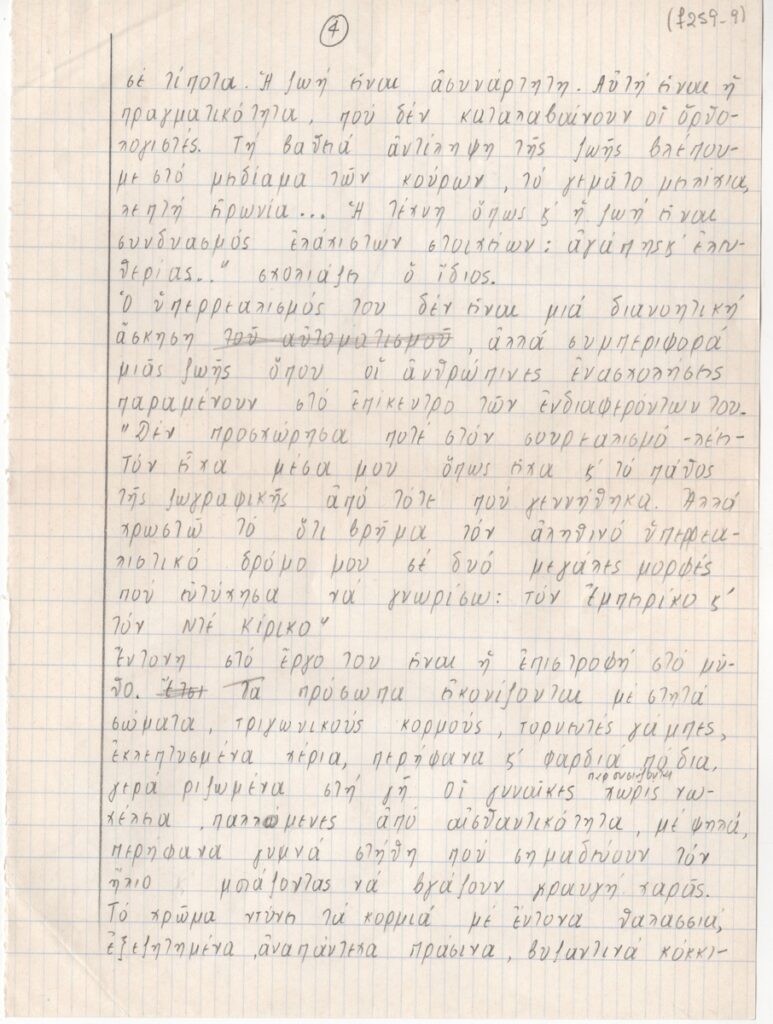 4
(f259-9)
σέ τίποτα. Ἡ ζωή εἶναι ἀσυνάρτητη. Αὐτή εἶναι ἡ
πραγματικότητα, πού δέν καταλαβαίνουν οἱ ὀρθο-
λογιστές. Τή βαθειά ἀντίληψη τῆς ζωῆς βλέπου-
με στό μειδίαμα τῶν κούρων, τό γεμάτο μειλίχια,
λεπτή εἰρωνία... Ἡ τέχνη ὅπως κ' ἡ ζωή εἶναι
συνδυασμός ἐλάχιστων στοιχείων: ἀγάπης κ' ἐλευ-
θερίας.." σχολιάζει ὁ ἴδιος.
Ὁ ὑπερρεαλισμός του δέν εἶναι μιά διανοητική
ἄσκηση τοῦ αὐτοματισμοῦ, ἀλλά συμπεριφορά
μιᾶς ζωῆς ὅπου οἱ ἀνθρώπινες ἐνασχολήσεις
παραμένουν στό ἐπίκεντρο τῶν ἐνδιαφερόντων του.
"Δέν προσχώρησα ποτέ στόν σουρεαλισμό -λέει-
Τόν εἶχα μέσα μου ὅπως εἶχα κ' τό πάθος
τῆς ζωγραφικῆς ἀπό τότε πού γεννήθηκα. Ἀλλά
χρωστῶ τό ὅτι βρῆμα τόν ἀληθινό ὑπερρεα-
λιστικό δρόμο μου σέ δυό μεγάλες μορφές
πού εὐτύχησα νά γνωρίσω: τόν Ἐμπειρίκο κ'
τόν Ντέ Κίρικο"
Ἔντονη στό ἔργο του εἶναι ἡ ἐπιστροφή στό μῦ-
θο. Ἔτσι Τα πρόσωπα εἰκονίζονται με στητά
σώματα, τριγωνικούς κορμούς, τορνευτές γάμπες,
ἐκλεπτυσμένα χέρια, περήφανα κ' φαρδιά πόδια,
γερά ριζωμένα στή γῆ Οἱ γυναῖκες παρουσιάζονται χωρίς νω-
χέλεια, παλλόμενες ἀπό αἰσθαντικότητα, μέ ψηλά,
περήφανα γυμνά στήθη πού σημαδεύουν τόν
ἥλιο μοιάζοντας νά βγάζουν κραυγή χαρᾶς.
Τό χρῶμα ντύνει τά κορμιά μέ ἔντονα θαλασσιά,
ἐξεζητημένα, ἀναπάντεχα πράσινα, βυζαντινά κόκκι-